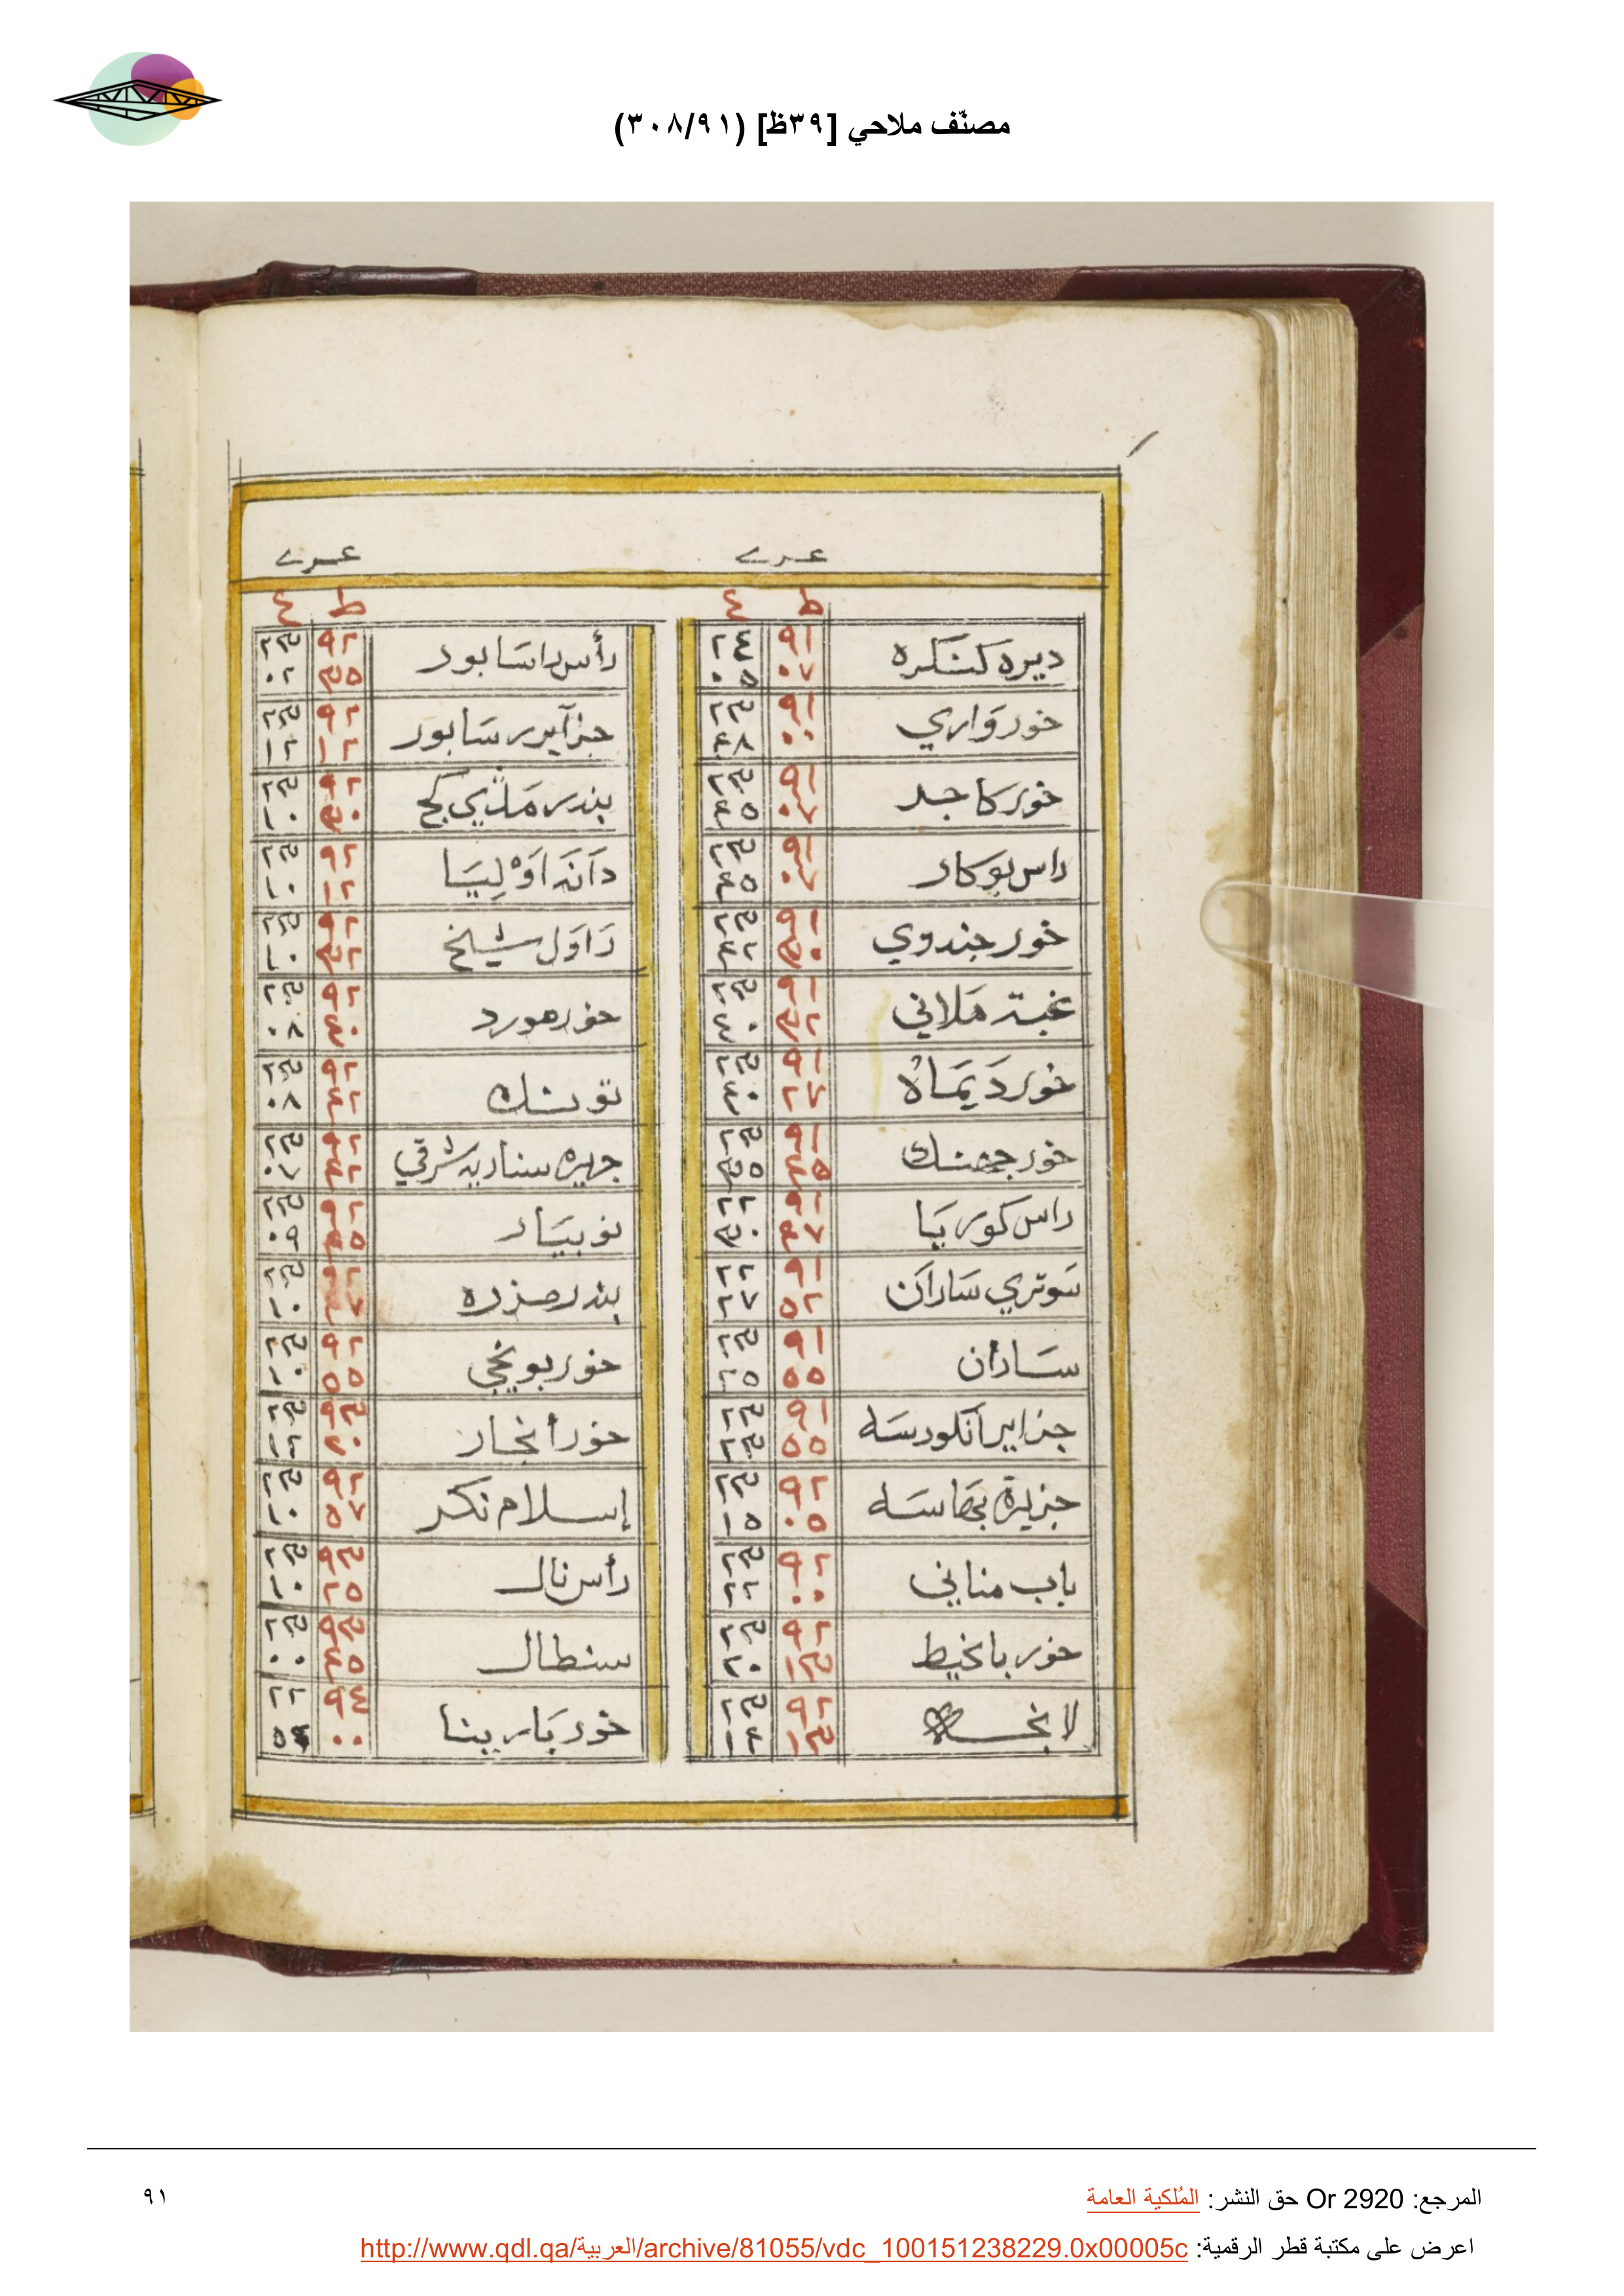 مصنّف ملاحي [٣٩ظ] (٣٠٨/٩١)
عرے عرے
ط ع ط ع
ديره كنكره ٩١ ٠٧ ٢٤ ٠٥
خور واري ٩١ ٠٠ ٢٣ ٤٨
خور كاجر ٩١ ٠٧ ٢٣ ٤٥
راس بوكار ٩١ ٠٧ ٢٣ ٤٥
خور جندوي ٩١ ٢٣ ٤٢
غبة مَلاني ٩١ ٢٣ ٤٠
خور دَيمَاه ٩١ ٢٧ ٢٣ ٤٠
خور جهنك ٩١ ٤٥ ٢٣ ٣٥
راس كوريَا ٩١ ٤٧ ٢٢ ٣٠
سَوتري سَارَان ٩١ ٥٢ ٢٢ ٢٧
سَاران ٩١ ٥٥ ٢٣ ٢٥
جزاير انكلودسَه ٩١ ٥٥ ٢٣ ٢٣
جزيرة بهَاسَه ٩٢ ٠٥ ٢٣ ١٥
باب مناني ٩٢ ٠٠ ٢٣ ٢٢
خور بانخيط ٩٢ ١٣ ٢٣ ٢٠
لانخـ ٩٢ ١٣ ٢٣ ١٤
رأس راسَابور ٩٢ ٣٥ ٢٣ ٠٢
جزآير سَابور ٩٢ ١٢ ٢٣ ١٢
بندر مَدَيي كج ٩٢ ٣٠ ٢٣ ١٠
دَانَه اَوْلِيَا ٩٢ ١٢ ٢٣ ١٠
رَاوَل شيخ ٩٢ ٣٢ ٢٣ ١٠
خور هورد ٩٢ ٤٠ ٢٣ ٠٨
توتنك ٩٢ ٤٢ ٢٣ ٠٨
جهيره سناديه شرقي ٩٢ ٤٢ ٢٣ ٠٧
نوبيَار ٩٢ ٤٥ ٢٣ ٠٩
بندر حزره ٩٢ ٤٧ ٢٣ ١٠
خور بونجي ٩٢ ٥٥ ٢٣ ١٠
خور أنجار ٩٣ ٢٠ ٢٣ ١٢
إسلام نكر ٩٢ ٥٧ ٢٣ ١٠
رأس نال ٩٣ ٢٥ ٢٣ ١٠
سنطال ٩٣ ٤٥ ٢٣ ٠٠
خور بَاريبنا ٩٤ ٠٠ ٢٢
المرجع: Or 2920 حق النشر: المُلكية العامة
٩١
اعرض على مكتبة قطر الرقمية: http://www.qdl.qa/العربية/archive/81055/vdc_100151238229.0x00005c